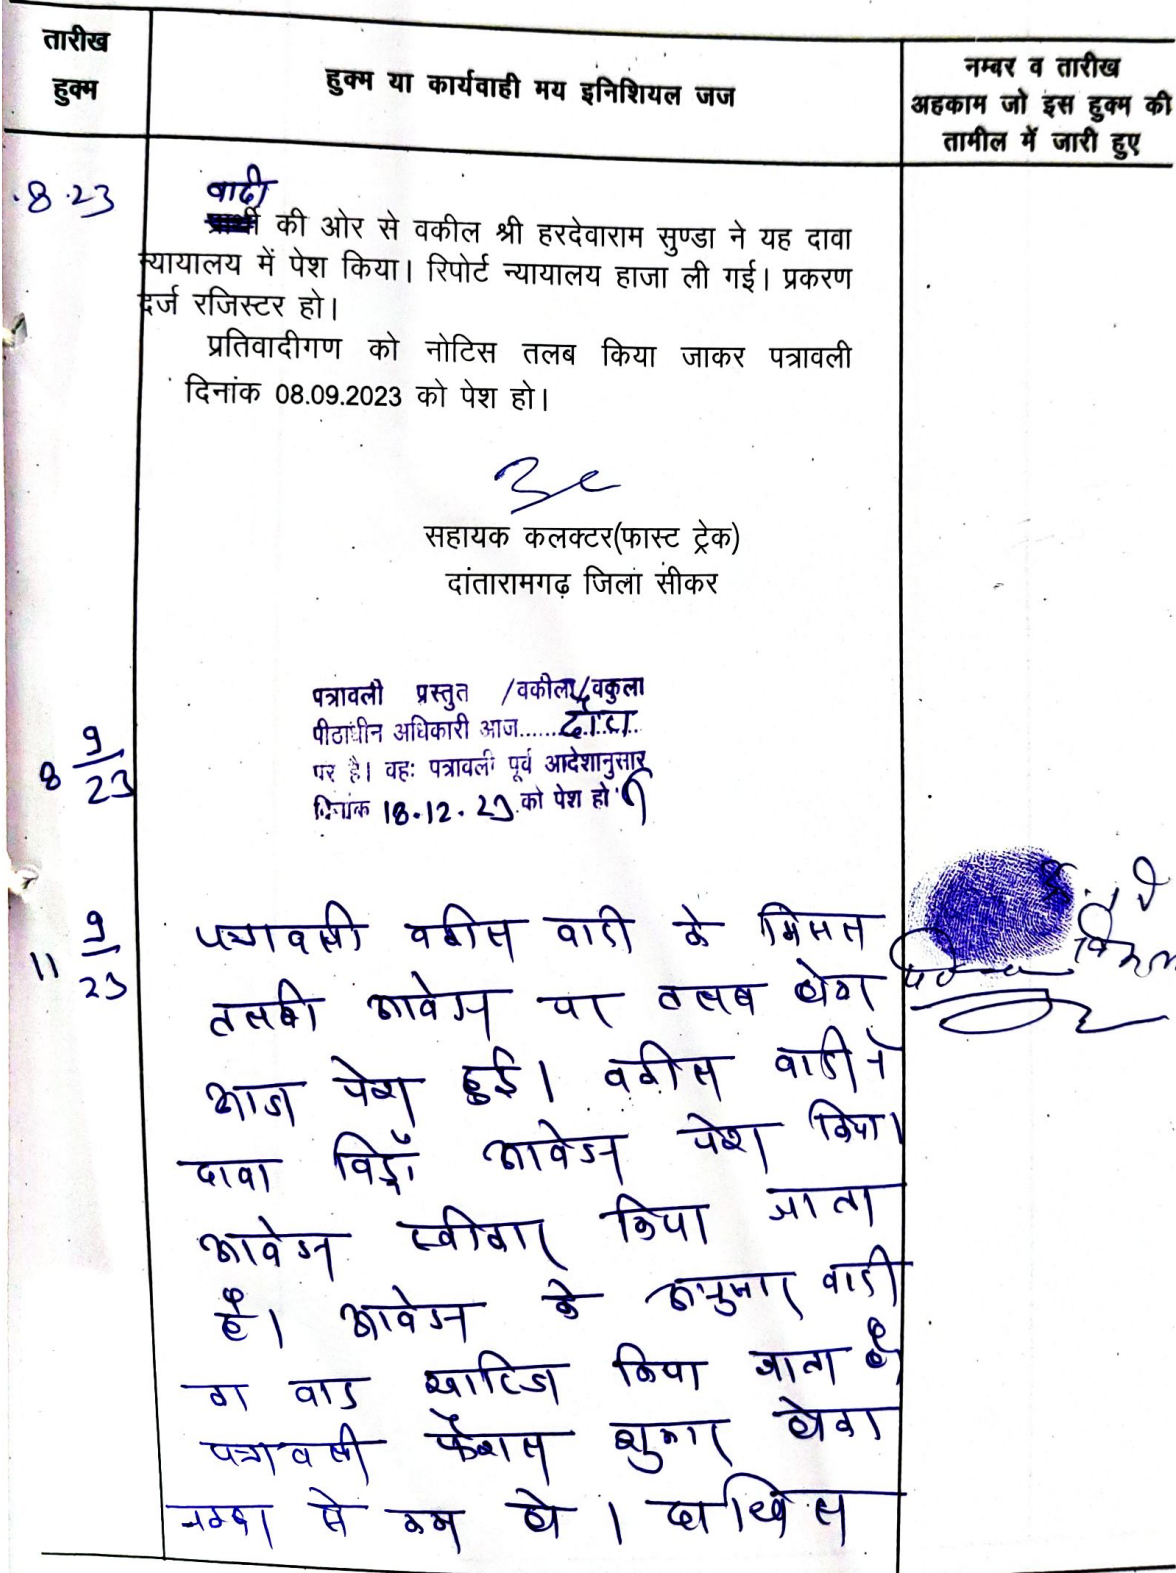 तारीख
हुक्म
हुक्म या कार्यवाही मय इनिशियल जज
नम्बर व तारीख
अहकाम जो इस हुक्म की
तामील में जारी हुए
.8.23
वादी
प्रार्थी की ओर से वकील श्री हरदेवाराम सुण्डा ने यह दावा
न्यायालय में पेश किया। रिपोर्ट न्यायालय हाजा ली गई। प्रकरण
दर्ज रजिस्टर हो।
प्रतिवादीगण को नोटिस तलब किया जाकर पत्रावली
दिनांक 08.09.2023 को पेश हो।
सहायक कलक्टर(फास्ट ट्रेक)
दांतारामगढ़ जिला सीकर
8 9/23
पत्रावली प्रस्तुत /वकीला/वकुला
पीठाधीन अधिकारी आज.......दौरा...
पर है। वहः पत्रावली पूर्व आदेशानुसार
दिनांक 18.12.23 को पेश हो
11 9/23
पत्रावली वकील वादी के मिसल
तलबी आवेदन पर तलब होकर
आज पेश हुई। वकील वादी ने
दावा विड्रॉ आवेदन पेश किया।
आवेदन स्वीकार किया जाता
है। आवेदन के अनुसार वादी
का वाद खारिज किया जाता है
पत्रावली फैसल शुमार होकर
नम्बर से कम हो । दाखिल